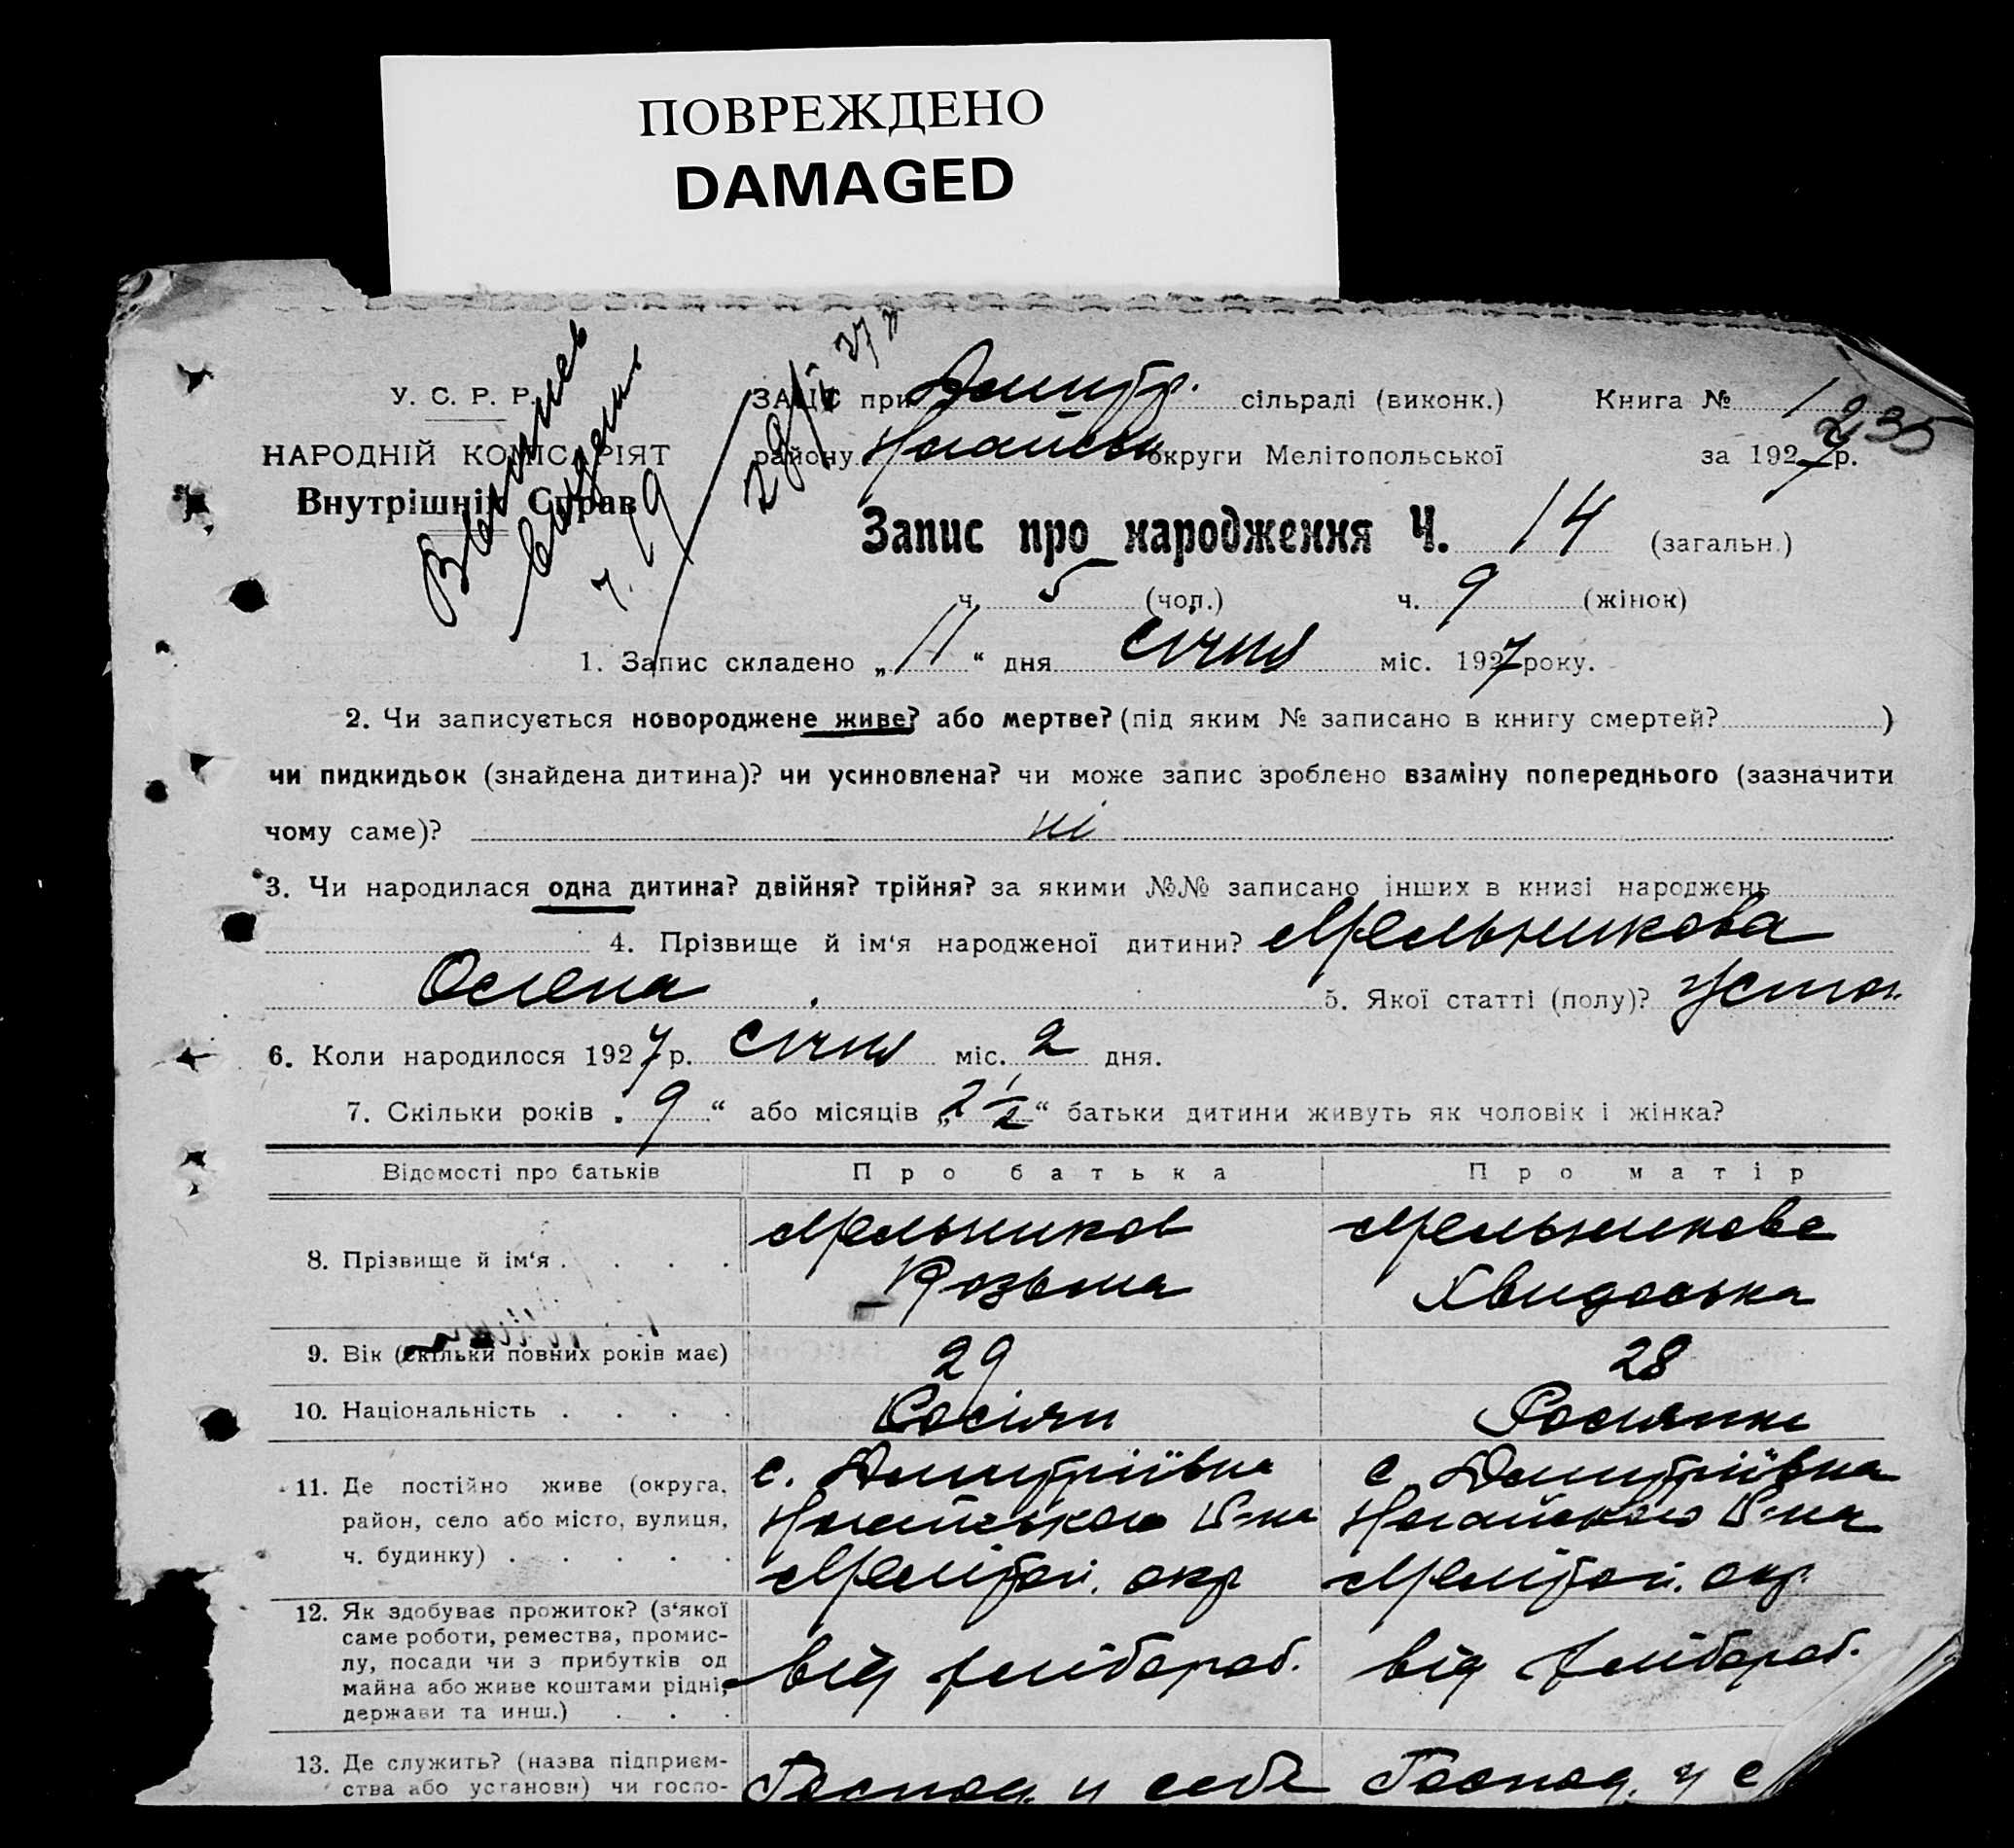 ПОВРЕЖДЕНО
DAMAGED
У. С. Р. Р.
НАРОДНІЙ КОМІСАРІЯТ
Внутрішніх Справ
7. 19
29/ 27 р
ЗАПИС при Дмитр. сільраді (виконк.) Книга № 1
235
району Ногайськ округи Мелітопольської за 1927 р.
Запис про народження Ч. 14 (загальн.)
ч. 5 (чол.) ч. 9 (жінок)
1. Запис складено „ 11 “ дня січня міс. 1927 року.
2. Чи записується новороджене живе? або мертве? (під яким № записано в книгу смертей? )
чи пидкидьок (знайдена дитина)? чи усиновлена? чи може запис зроблено взаміну попереднього (зазначити
чому саме)? ні
3. Чи народилася одна дитина? двійня? трійня? за якими №№ записано інших в книзі народжень
4. Прізвище й ім‘я народженої дитини? Мельникова
Олена 5. Якої статті (полу)?
6. Коли народилося 1927 р. січня міс. 2 дня.
7. Скільки років „ 9 “ або місяців „ 2 1/2 “ батьки дитини живуть як чоловік і жінка?
Відомості про батьків Про батька Про матір
8. Прізвище й ім‘я . . . . Мельников Козьма Мельникова Хвидоська
9. Вік (скільки повних років має) 29 28
10. Національність . . . . Росіян Росиянка
11. Де постійно живе (округа, с. Дмитріївка с. Дмитріївка
район, село або місто, вулиця, Ногайського Р-на Ногайського Р-на
ч. будинку) . . . . . Мелітоп. окр Мелітоп. окр
12. Як здобуває прожиток? (з‘якої
саме роботи, ремества, промис-
лу, посади чи з прибутків од від хлібороб. від хлібороб.
майна або живе коштами рідні,
держави та инш.) . . .
13. Де служить? (назва підприєм-
ства або установи) чи госпо- Господ. у себе Господ. у с